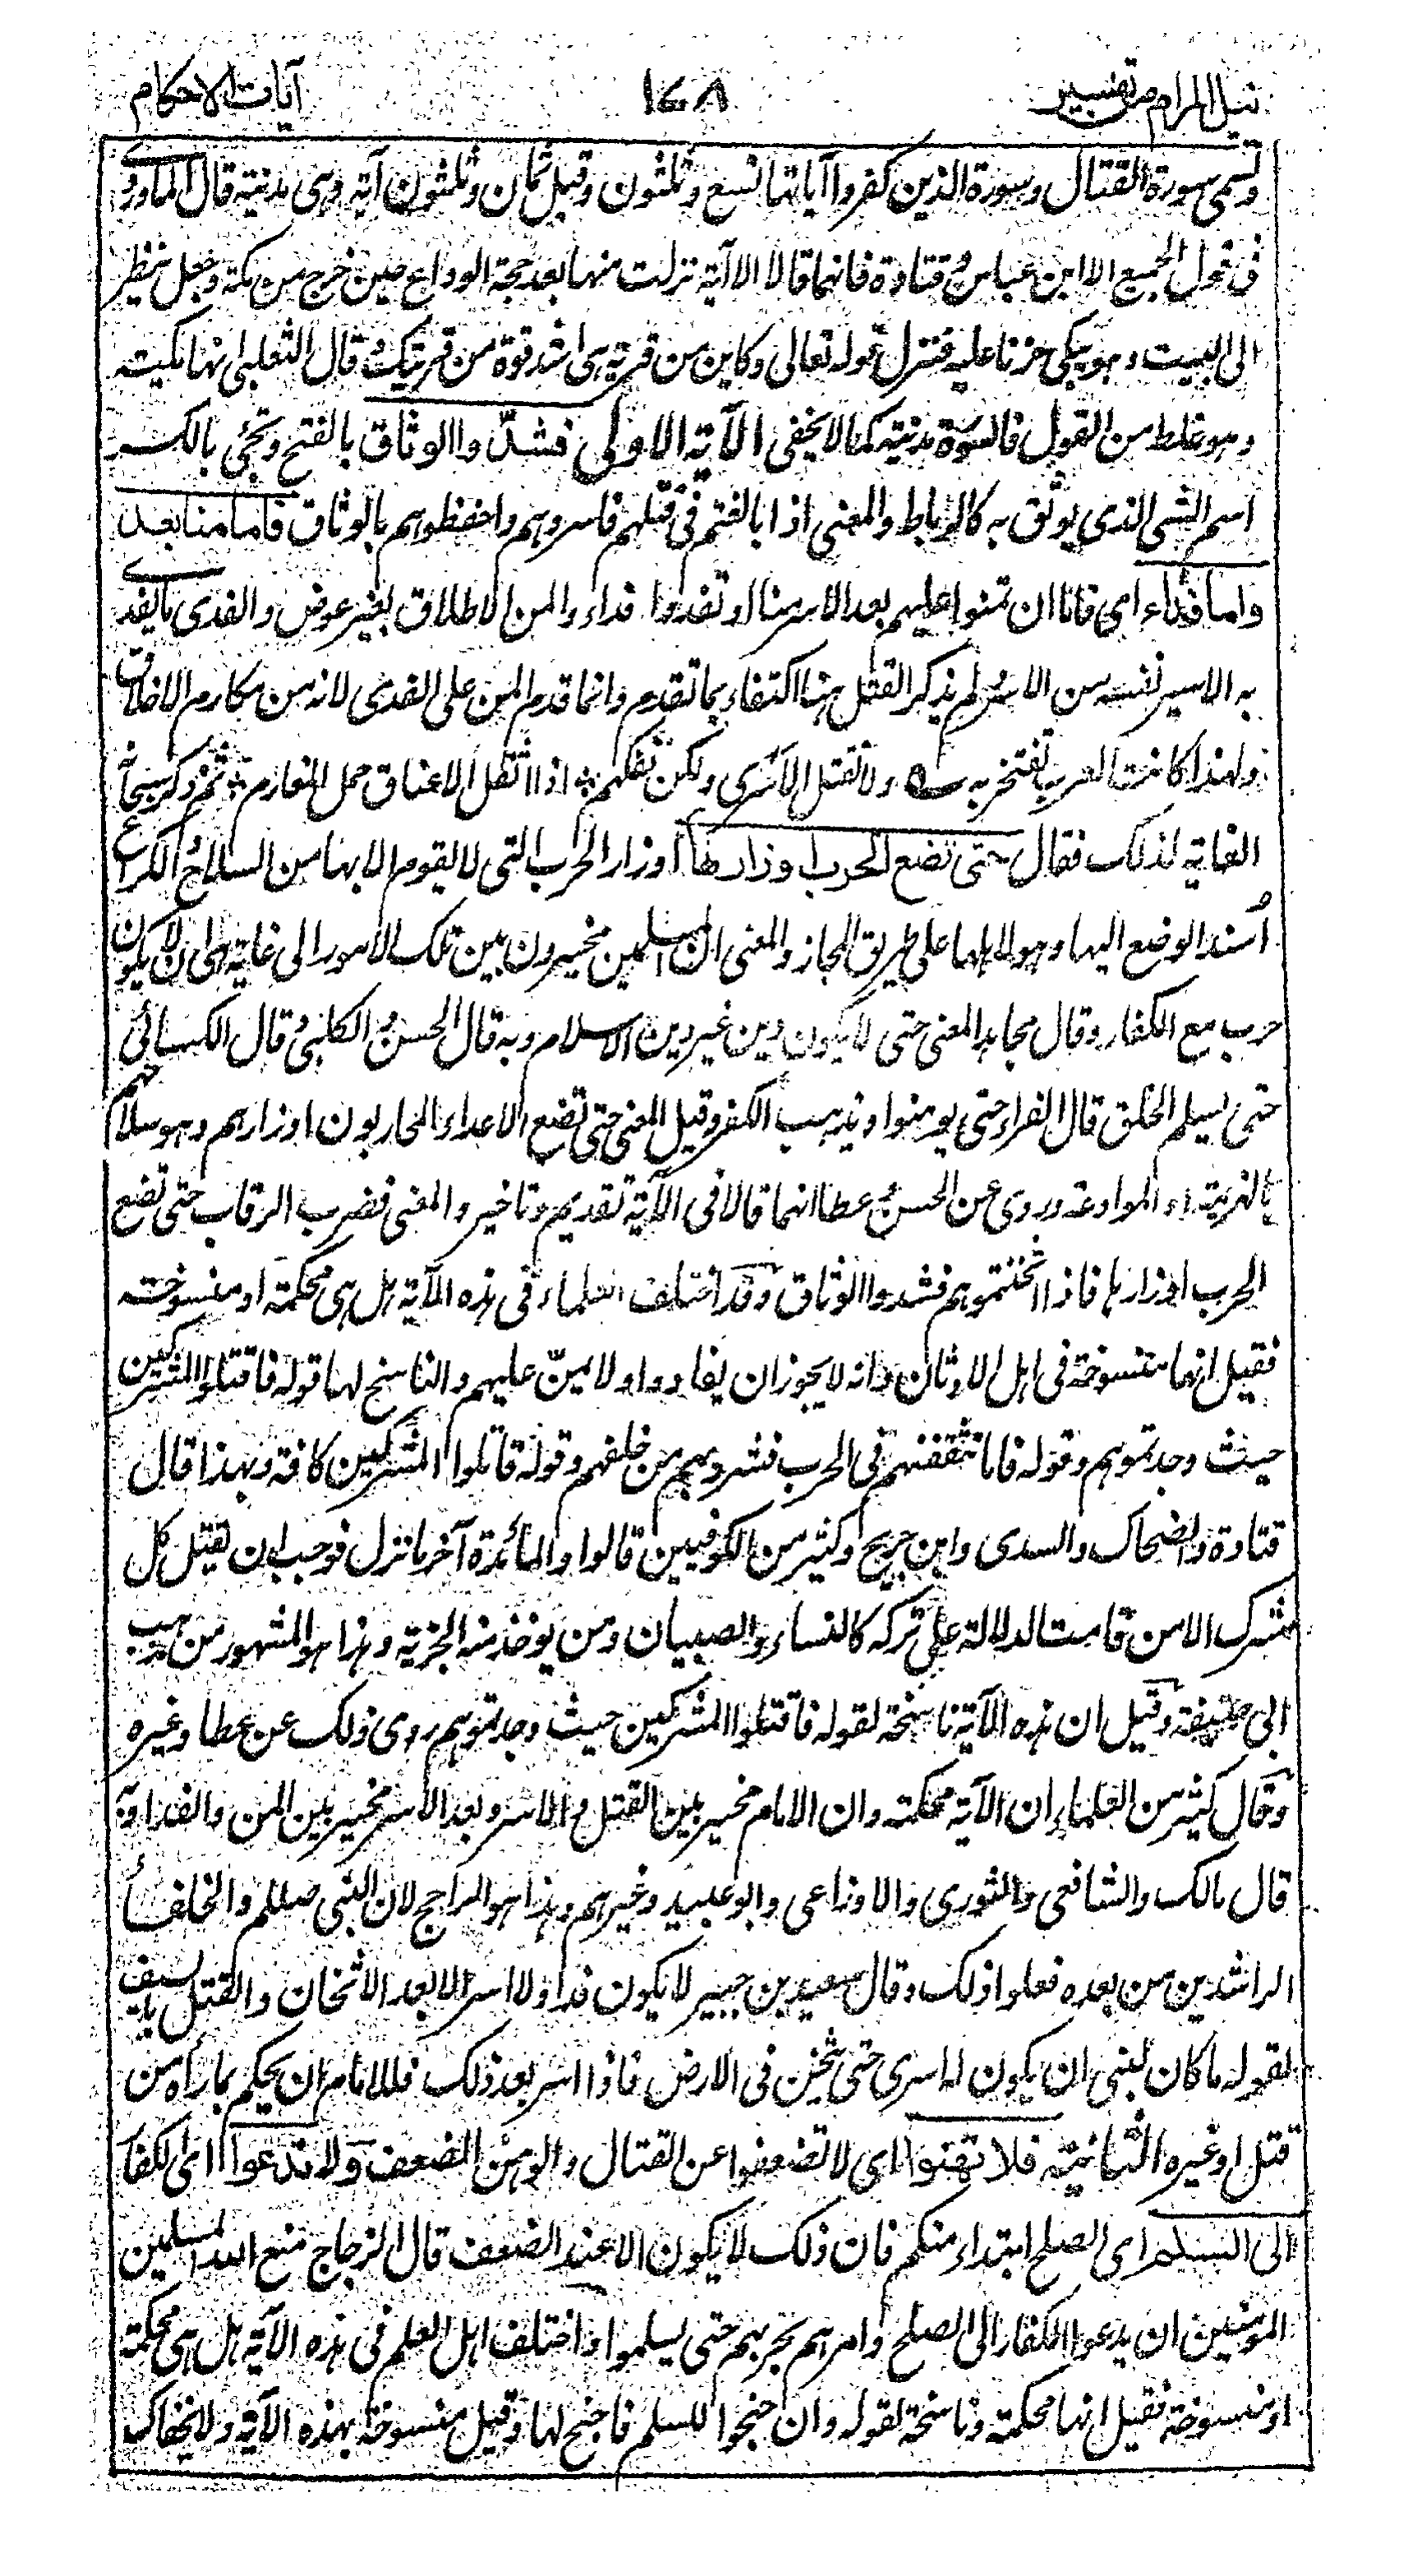 نيل المرام من تفسير ١٧٨ آيات الاحكام
وتسمى سورة القتال وسورة الذين كفروا آياتها تسع وثلثون وقيل ثمان وثلثون آية وهى مدنية قال الماوردى
فى قول الجميع الا ابن عباس وقتادة فانهما قالا الا آية نزلت منها بعد حجة الوداع حين خرج من مكة وجعل ينظر
الى البيت وهو يبكى حزنا عليه فنزل قوله تعالى وكاين من قرية هى اشد قوة من قريتك وقال الثعلبى انها مكية
وهو غلط من القول فالسورة مدنية كما لا يخفى الآية الاولى فشدّوا الوثاق بالفتح وتجئ بالكسر
اسم الشى الذى يوثق به كالرباط والمعنى اذا بالغتم فى قتلهم فاسروهم واحفظوهم بالوثاق فاما منا بعد
واما فداء اى فاما ان تمنوا عليهم بعد الاسر منا او تفدوا فداء والمن الاطلاق بغير عوض والفدى ما يفدى
به الاسير نفسه من الاسر ولم يذكر القتل هنا اكتفاء بما تقدم وانما قدم المن على الفدى لانه من مكارم الاخلاق
ولهذا كانت العرب تفتخر به ولا نقتل الاسرى ولكن نفكهم ؞ اذا اثقل الاعناق حمل المغارم ؞ ثم ذكر سبحانه
الغاية لذلك فقال حتى تضع الحرب اوزارها اوزار الحرب التى لا يقوم الا بها من السلاح والكراع
اُسند الوضع اليها وهو لاهلها على طريق المجاز والمعنى ان المسلمين مخيرون بين تلك الامور الى غاية هى ان لا يكون
حرب مع الكفار وقال مجاهد المعنى حتى لا يكون دين غير دين الاسلام وبه قال الحسن والكلبى وقال الكسائى
حتى يسلم الخلق قال الفراء حتى يومنوا ويذهب الكفر وقيل المعنى حتى تضع الاعداء المحاربون اوزارهم وهو سلاحهم
بالهزيمة او الموادعة وروى عن الحسن وعطا انهما قالا فى الآية تقديم وتاخير والمعنى فضرب الرقاب حتى تضع
الحرب اوزارها فاذا اثخنتموهم فشدوا الوثاق وقد اختلف العلماء فى هذه الآية هل هى محكمة او منسوخة
فقيل انها منسوخة فى اهل الاوثان وانه لا يجوز ان يفادوا ولا يمنّ عليهم والناسخ لها قوله فاقتلوا المشركين
حيث وجدتموهم وقوله فاما تثقفنهم فى الحرب فشرد بهم من خلفهم وقوله قاتلوا المشركين كافة وبهذا قال
قتادة والضحاك والسدى وابن جريج وكثير من الكوفيين قالوا والمائدة آخر ما نزل فوجب ان يقتل كل
مشرك الا من قامت الدلالة على تركه كالنساء والصبيان ومن يوخذ منه الجزية وهذا هو المشهور من مذهب
ابى حنيفة وقيل ان هذه الآية ناسخة لقوله فاقتلوا المشركين حيث وجدتموهم روى ذلك عن عطا وغيره
وقال كثير من العلماء ان الآية محكمة وان الامام مخير بين القتل والاسر وبعد الاسر مخير بين المن والفداء وبه
قال مالك والشافعى والثورى والاوزاعى وابو عبيد وغيرهم وهذا هو الراجح لان النبى صلعم والخلفاء
الراشدين من بعده فعلوا ذلك وقال سعيد بن جبير لا يكون فداء ولا اسر الا بعد الاثخان والقتل بالسيف
لقوله ما كان لنبى ان يكون له اسرى حتى يثخن فى الارض فاذا اسر بعد ذلك فللامام ان يحكم بما راه من
قتل او غيره الثانية فلا تهنوا اى لا تضعفوا عن القتال والوهن الضعف ولا تدعوا اى الكفار
الى السلم اى الصلح ابتداء منكم فان ذلك لا يكون الا عند الضعف قال الزجاج منع الله المسلمين
المومنين ان يدعوا الكفار الى الصلح وامرهم بحربهم حتى يسلموا واختلف اهل العلم فى هذه الآية هل هى محكمة
او منسوخة فقيل انها محكمة وناسخة لقوله وان جنحوا للسلم فاجنح لها وقيل منسوخة بهذه الآية ولا يخفاك